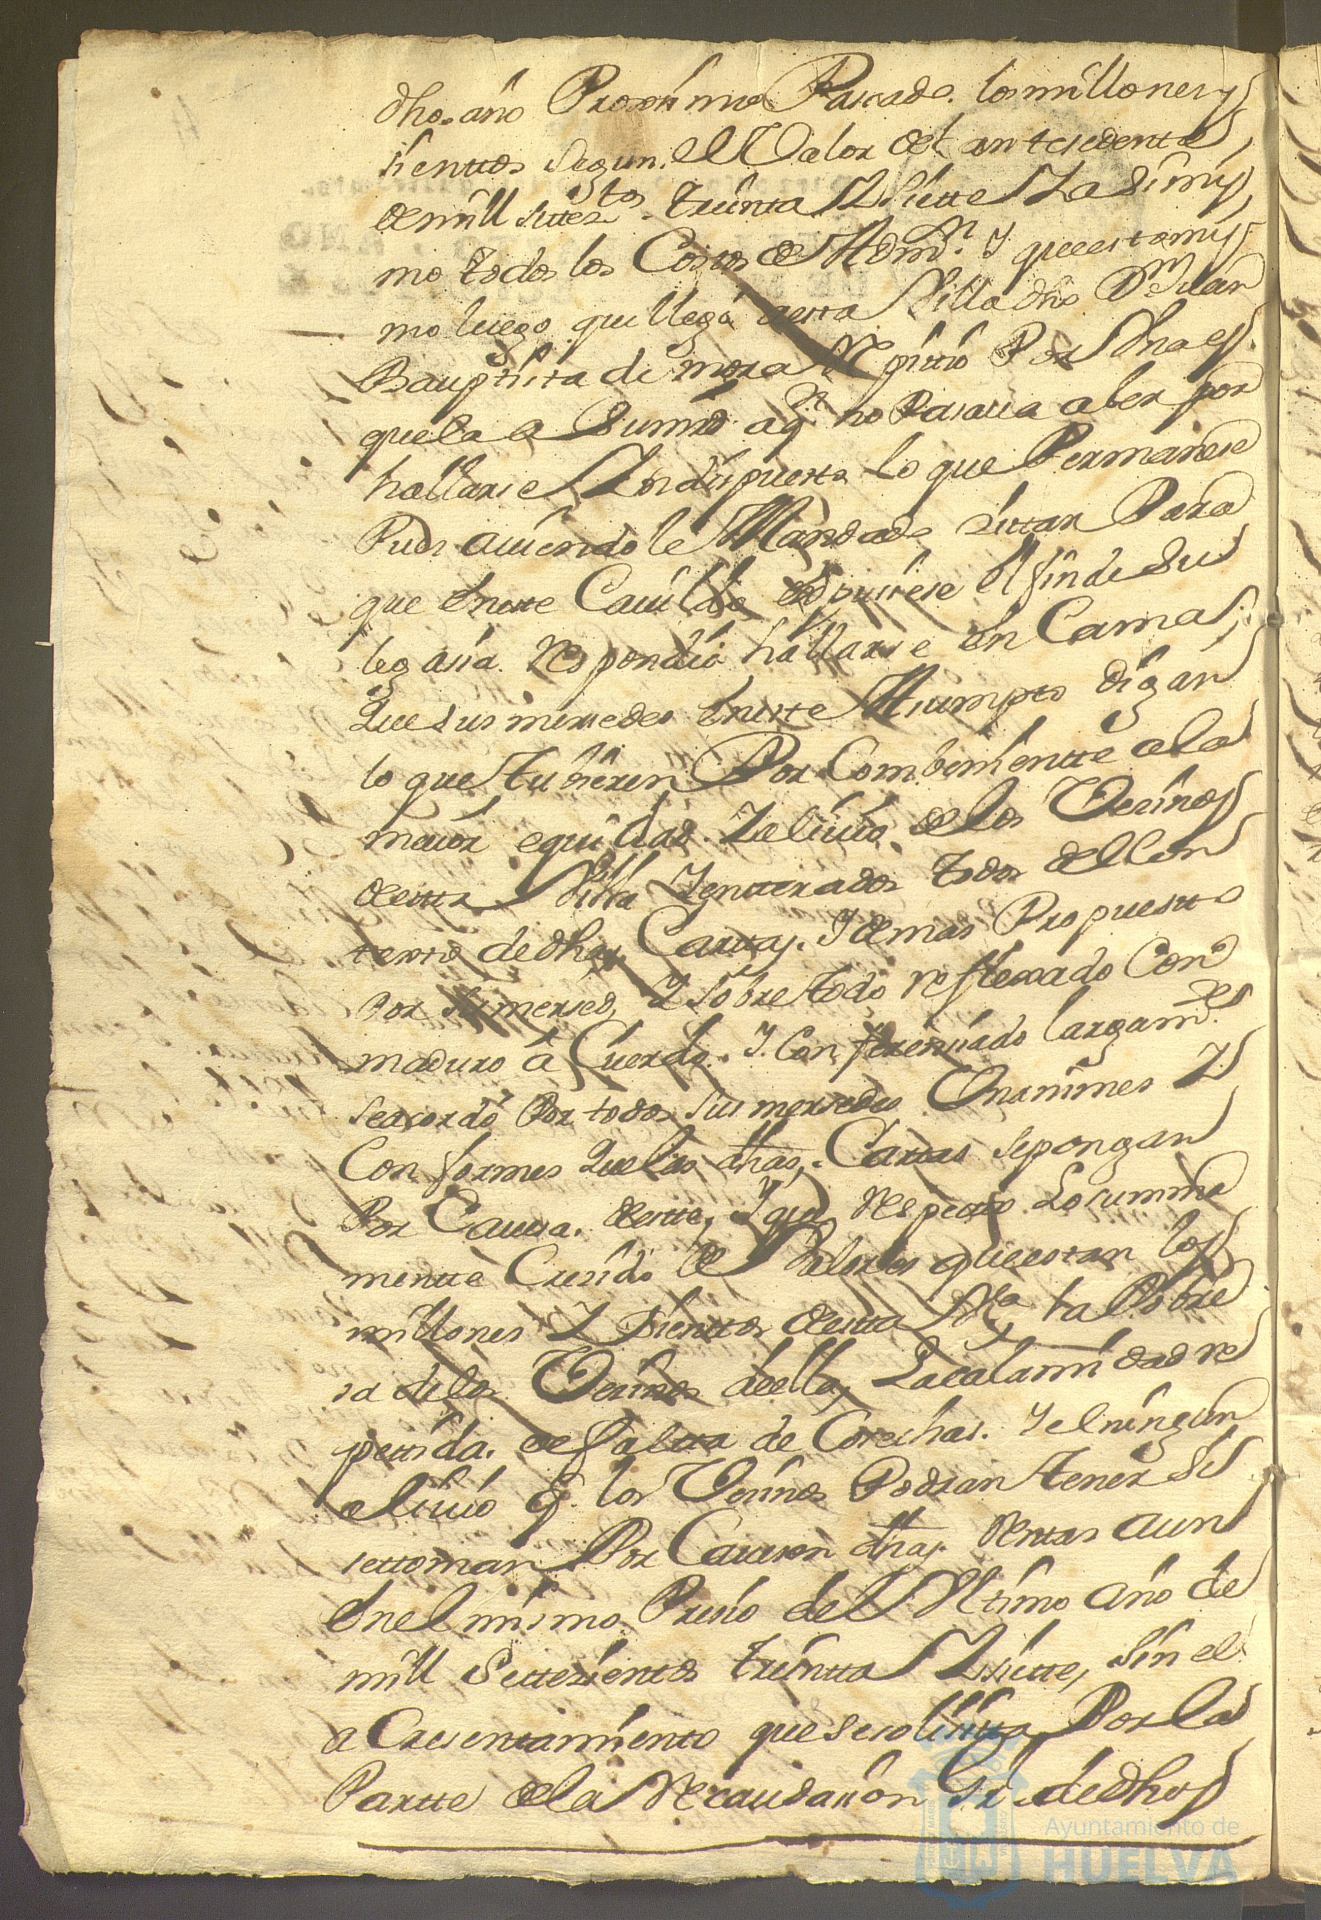 dho. año Proximo Passado. los millones y
sienttos segun el Valor del antesedente
de mill settez.tos treinta Y Siette Y a Simis
mo todos los Costos de Adm.n Y que estamis
mo luego que llegó a esta Villa dho D.n Juan
Bauptista de mora Repitió Por dha es
quela a Sumrd. a q.n no Pasaua a ber por
hallarse Yndispuesto lo que Permanese
Pues auiendole Mandado Zittar Para
que eneste Cauildo expusiese el fin de Su
legasia Respondió hallarse en Cama
Que sus mersedes eneste Asumpto digan
lo que tubieren Por Combeniente a la
maior equidad Y aliuio de los Vecinos
de esta Villa Y entterados todos del con
texto de dhas Carttas. Y demas Propuesto
Por su mersed, Y sobre todo reflexado Con
maduro a Cuerdo. Y Conferensiado largam.te
se acordó Por todos sus mersedes Vnanimes Y
Conformes Que las dhas. Cartas se pongan
Por Cauesa. de este, Y que Respecto Lo summa
mente Cresido de Valores que estan los
millones Y Sienttos de esta V.a La Pobre
sa de los Vecinos de ella, La calamidad re
pettida. de falta de Cosechas. Y el ningun
aliuio q. los Vecinos Podran tener Si
se toman Por Cauesón dhas. Rentas aun
en el mismo Presio del Vltimo año de
mill Settesientos treintta Y Siette, Sin el
a Cresentamiento que se solisita Por la
Partte de la Recaudasion Gr.l de dhos
Ayuntamiento de
HUELVA